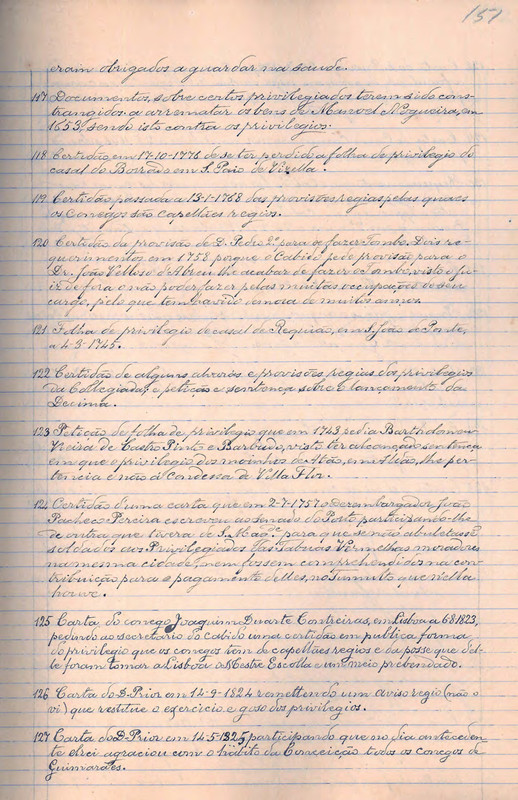 157
eram obrigados a guardar na saude.
117 Documentos, sobre certos privilegiados terem sido cons-
trangidos a arrematar os bens de Manoel Nogueira, em
1653, sendo isto contra os privilegios.
118 Certidão em 17-10-1776 de se ter perdido a folha de privilegio do
casal do Borrão em S. Paio de Vizella.
119 Certidão passada a 13-1-1768 das provisões regias pelas quaes
os Conegos são capellães regios.
120 Certidão da provisão de D. Pedro 2º para se fazer Tombo. Dois re-
querimentos em 1758 porque o Cabido pede provisão para o
Dr. João Velloso de Abreu lhe acabar de fazer o Tombo, visto o ju-
iz de fora o não poder fazer pelas muitas occupações de seu
cargo, pelo que tem havido demora de muitos annos.
121 Folha de privilegio do casal de Requião, em S. João de Ponte,
a 4-3-1745.
122 Certidão de alguns alvarás e provisões regias dos privilegios
da Collegiada; e petição e sentença sobre o lançamento da
Decima.
123 Petição de folha de privilegio que em 1743 pedia Bartholomeu
Vieira de Castro Pinto e Barbado, visto ter alcançado sentença
em que o privilegio dos moinhos de Atão, em Atião, lhe per-
tencia e não á Condessa de Villa Flor.
124 Certidão d'uma carta que em 2-7-1757 o desembargador João
Pacheco Pereira escreveu ao senado do Porto participando-lhe
de outra que tivera de S. Magde. para que se não abuletasse
soldados aos Privilegiados das Tabuas Vermelhas moradores
na mesma cidade, nem fossem comprehendidos na con-
tribuição para o pagamento delles, no Tumulto que n'ella
houve.
125 Carta do conego Joaquim Duarte Contreiras, em Lisboa a 6-8-1823,
pedindo ao secretario do cabido uma certidão em publica forma
do privilegio que os conegos tem de capellães regios e da posse que del-
le foram tomar a Lisboa o Mestre Escolla e um meio prebendado.
126 Carta do D. Prior em 14-9-1824 remettendo um aviso regio (não o
vi) que restitue o exercicio e goso dos privilegios.
127 Carta do D. Prior em 14-5-1825, participando que no dia anteceden-
te elrei agraciou com o habito da Conceição todos os conegos de
Guimarães.